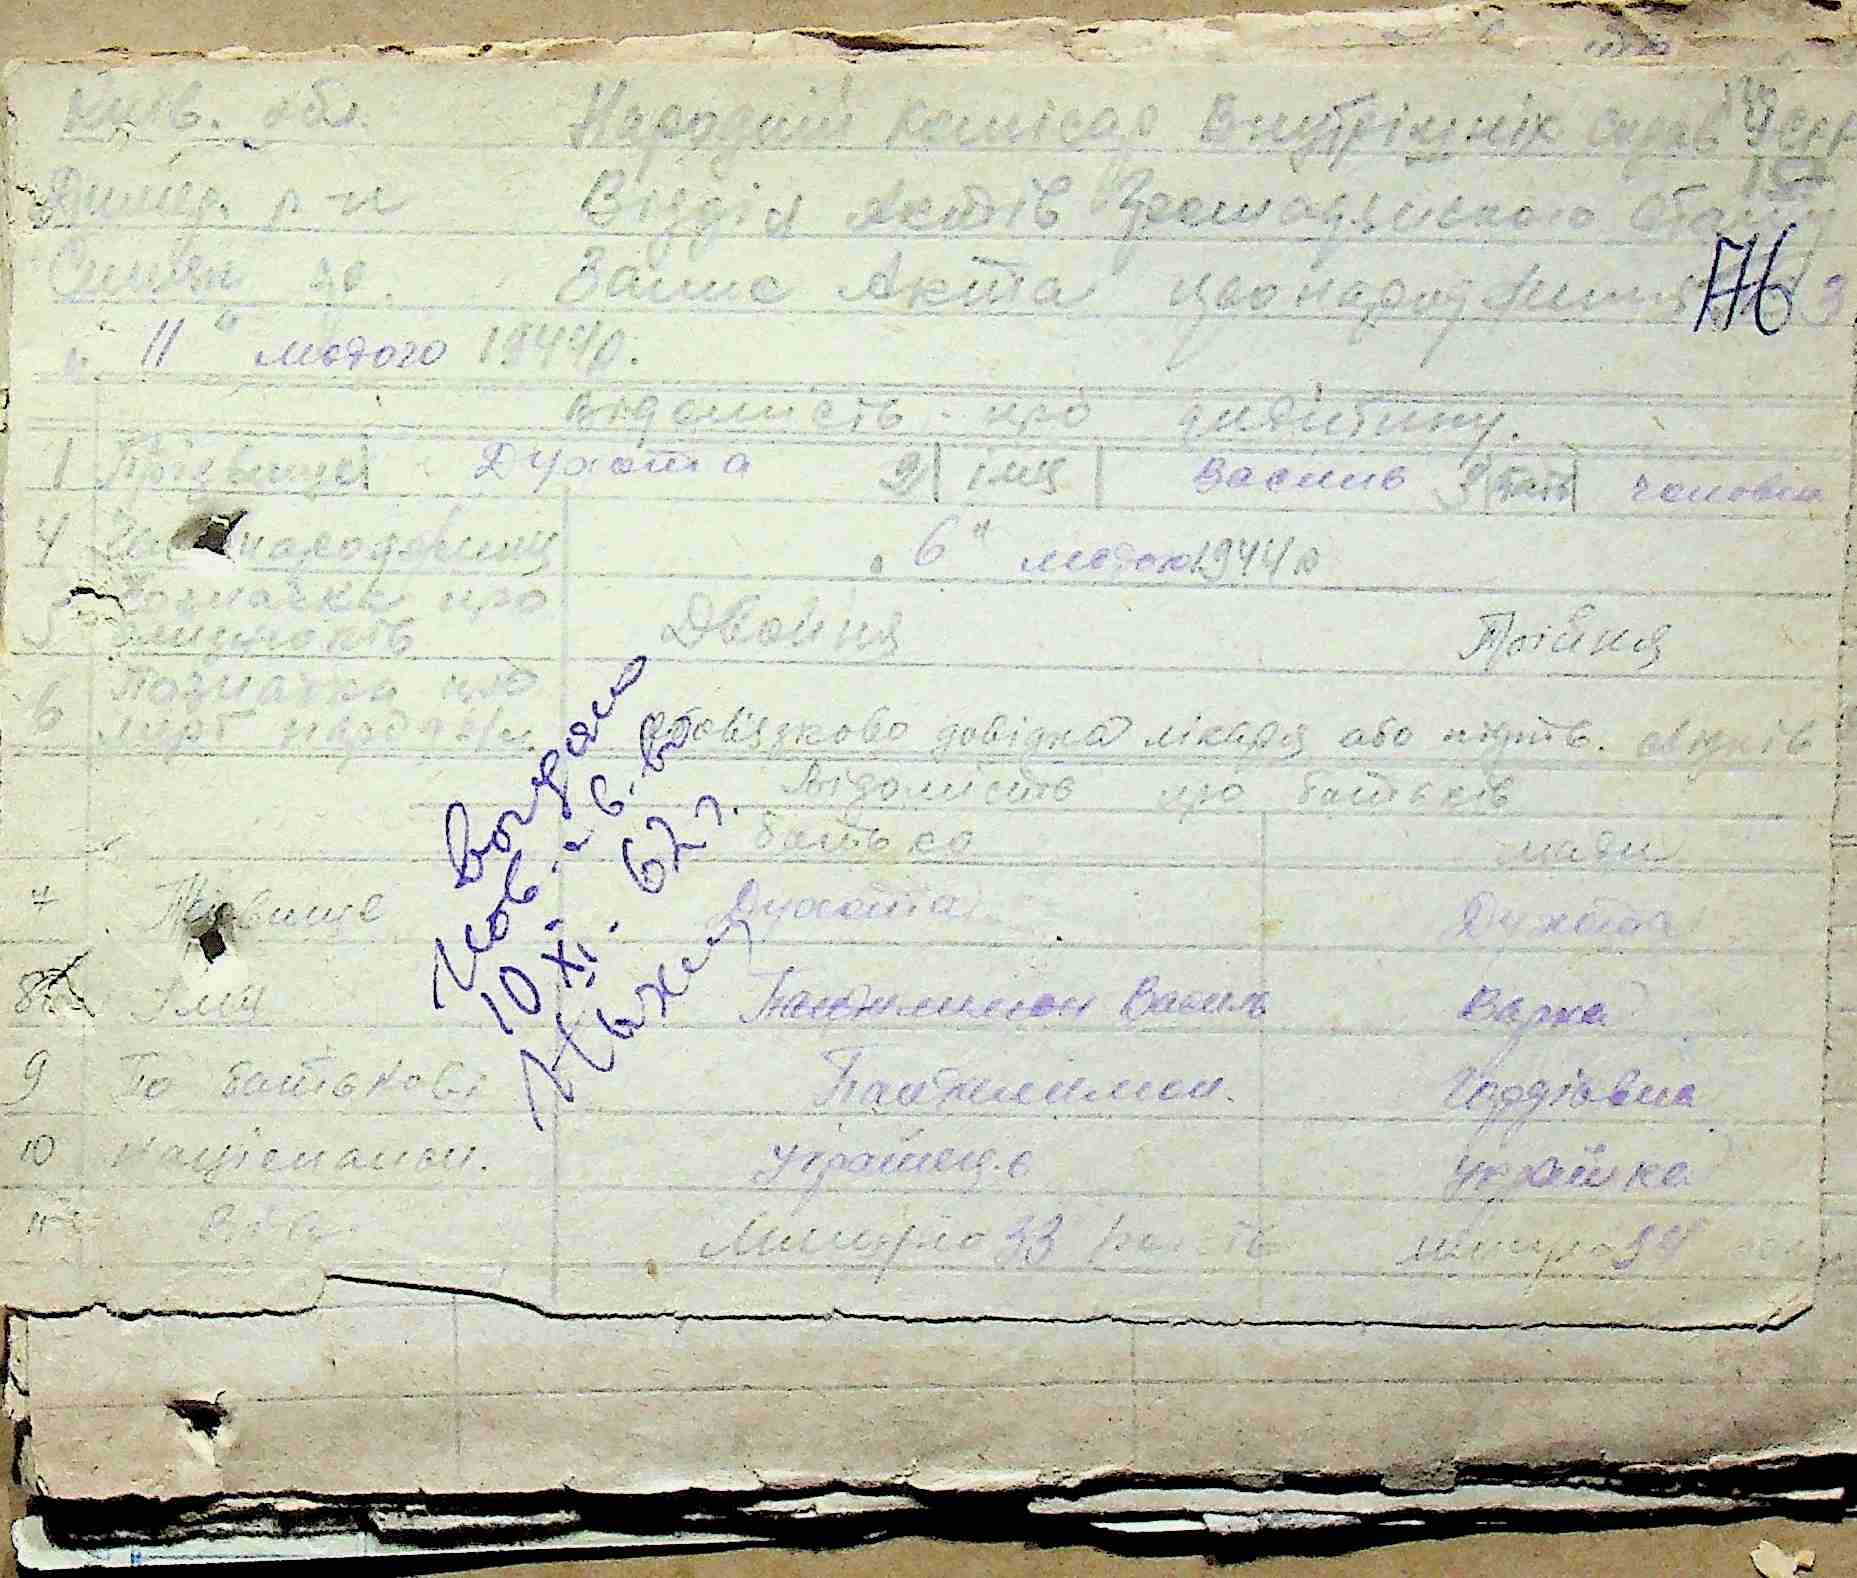 Київ. обл. Народній комісар Внутрішніх справ УССР
Димер. р-н Відділ Актів Громадянського Стану
Запис Акта про народження 3
176
"11" лютого 1944 р.
Відомість про дитину.
1 Прізвище Духота 2 імя Василь 3 стать чоловіч
4 Час народження "6" лютого 1944 р
5 Позначка про близнюків Двойня Трійня
6 Позначка про обовязково довідка лікаря або підтв. свідків
Відомість про батьків
батько мати
7 Прізвище Духота Духота
8 Імя Пантилимон Василь Варка
9 По батькові Пантилимон. Гордіївна
10 Національн. Українець Українка
11 Вік Минуло 33 минуло
пов. 10 XI. 62 г.